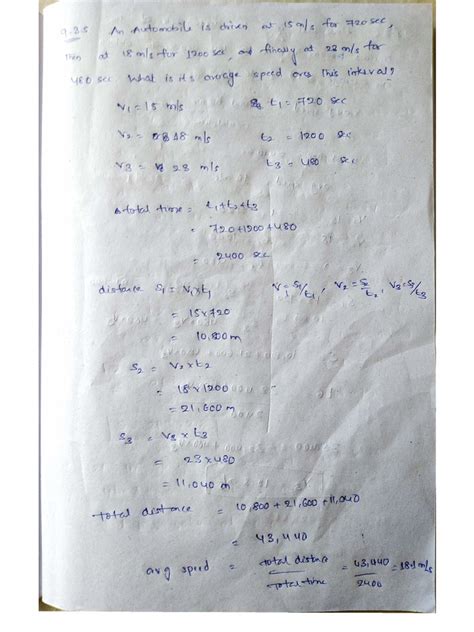 9.2.5 An Automobile is driven at 15 m/s for 720 sec,
then at 18 m/s for 1200 sec, and finally at 23 m/s for
480 sec What is its average speed over this interval?
V1 = 15 m/s t1 = 720 sec
V2 = 18 m/s t2 = 1200 sec
V3 = 23 m/s t3 = 480 sec
total time = t1+t2+t3
= 720+1200+480
= 2400 sec
distance S1 = V1×t1 V1=S1/t1, V2=S2/t2, V3=S3/t3
= 15×720
= 10,800 m
S2 = V2×t2
= 18×1200
= 21,600 m
S3 = V3×t3
= 23×480
= 11,040 m
total distance = 10,800 + 21,600 + 11,040
= 43,440
avg speed = total distance / total time = 43,440 / 2400 = 18.1 m/s